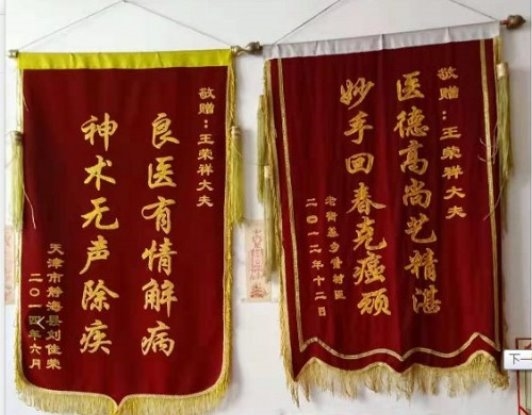 敬赠：王荣祥大夫
良医有情解病
神术无声除疾
天津市静海县刘佳荣
二〇一四年六月
敬赠：王荣祥大夫
医德高尚艺精湛
妙手回春克痘顽
二〇一二年十二日
下一